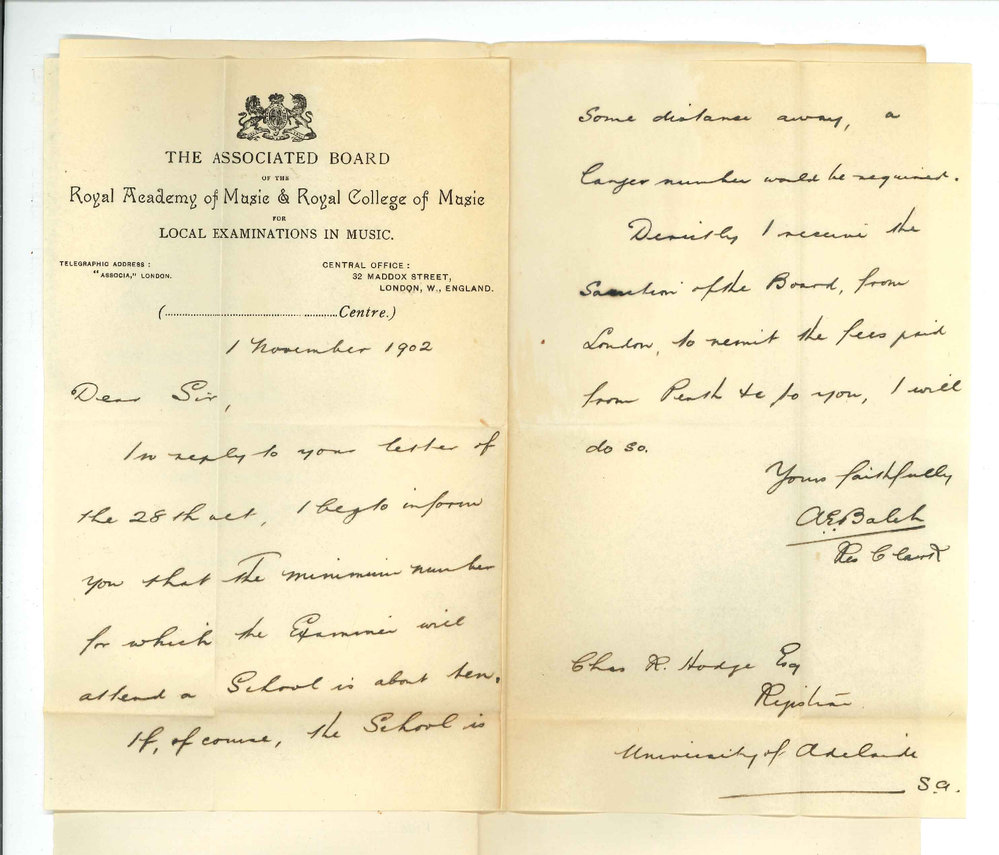 THE ASSOCIATED BOARD
OF THE
Royal Academy of Music & Royal College of Music
FOR
LOCAL EXAMINATIONS IN MUSIC.
TELEGRAPHIC ADDRESS :
"ASSOCIA," LONDON.
CENTRAL OFFICE :
32 MADDOX STREET,
LONDON, W., ENGLAND.
(.................................................Centre.)
1 November 1902
Dear Sir,
In reply to your letter of
the 28th ult, I beg to inform
you that the minimum number
for which the Examiner will
attend a School is about ten.
If, of course, the School is
some distance away, a
larger number would be required.
Directly I receive the
Sanction of the Board, from
London, to remit the fees paid
from Perth &c to you, I will
do so.
Yours faithfully
Res
Chas R. Hodge Esq
Registrar
University of Adelaide
S.A.